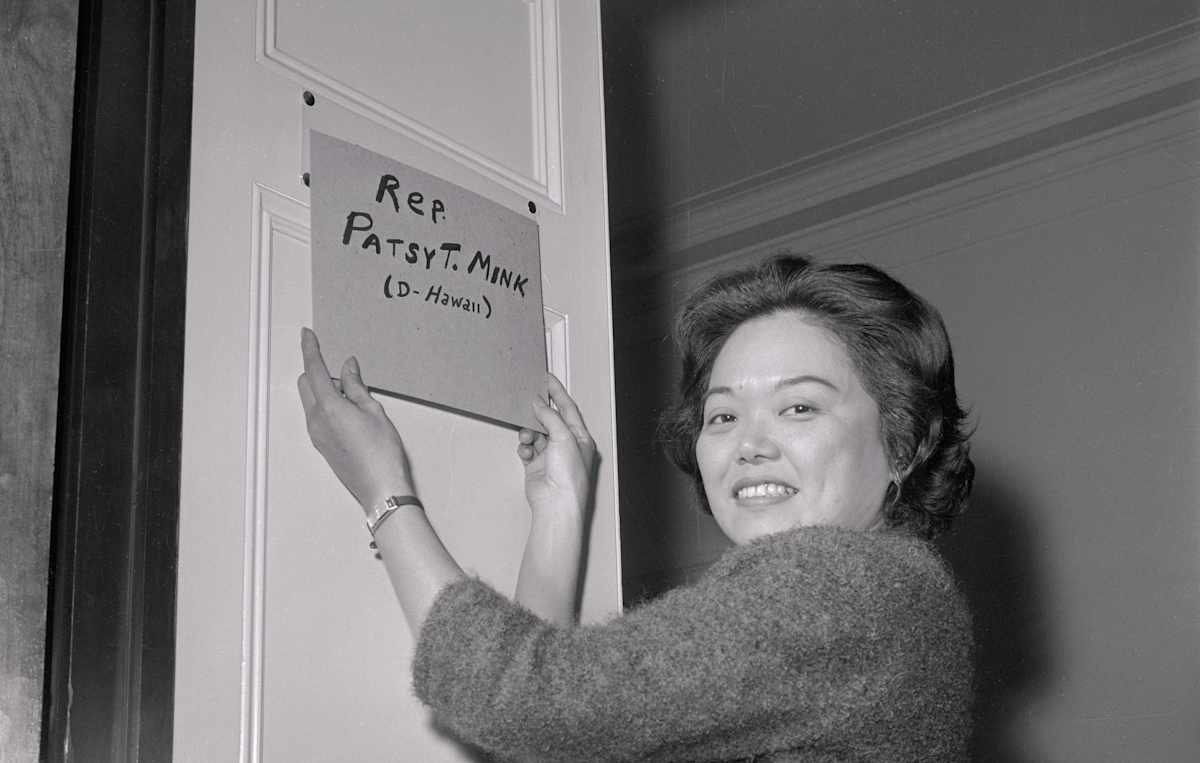 Rep.
PATSY T. MINK
(D-Hawaii)